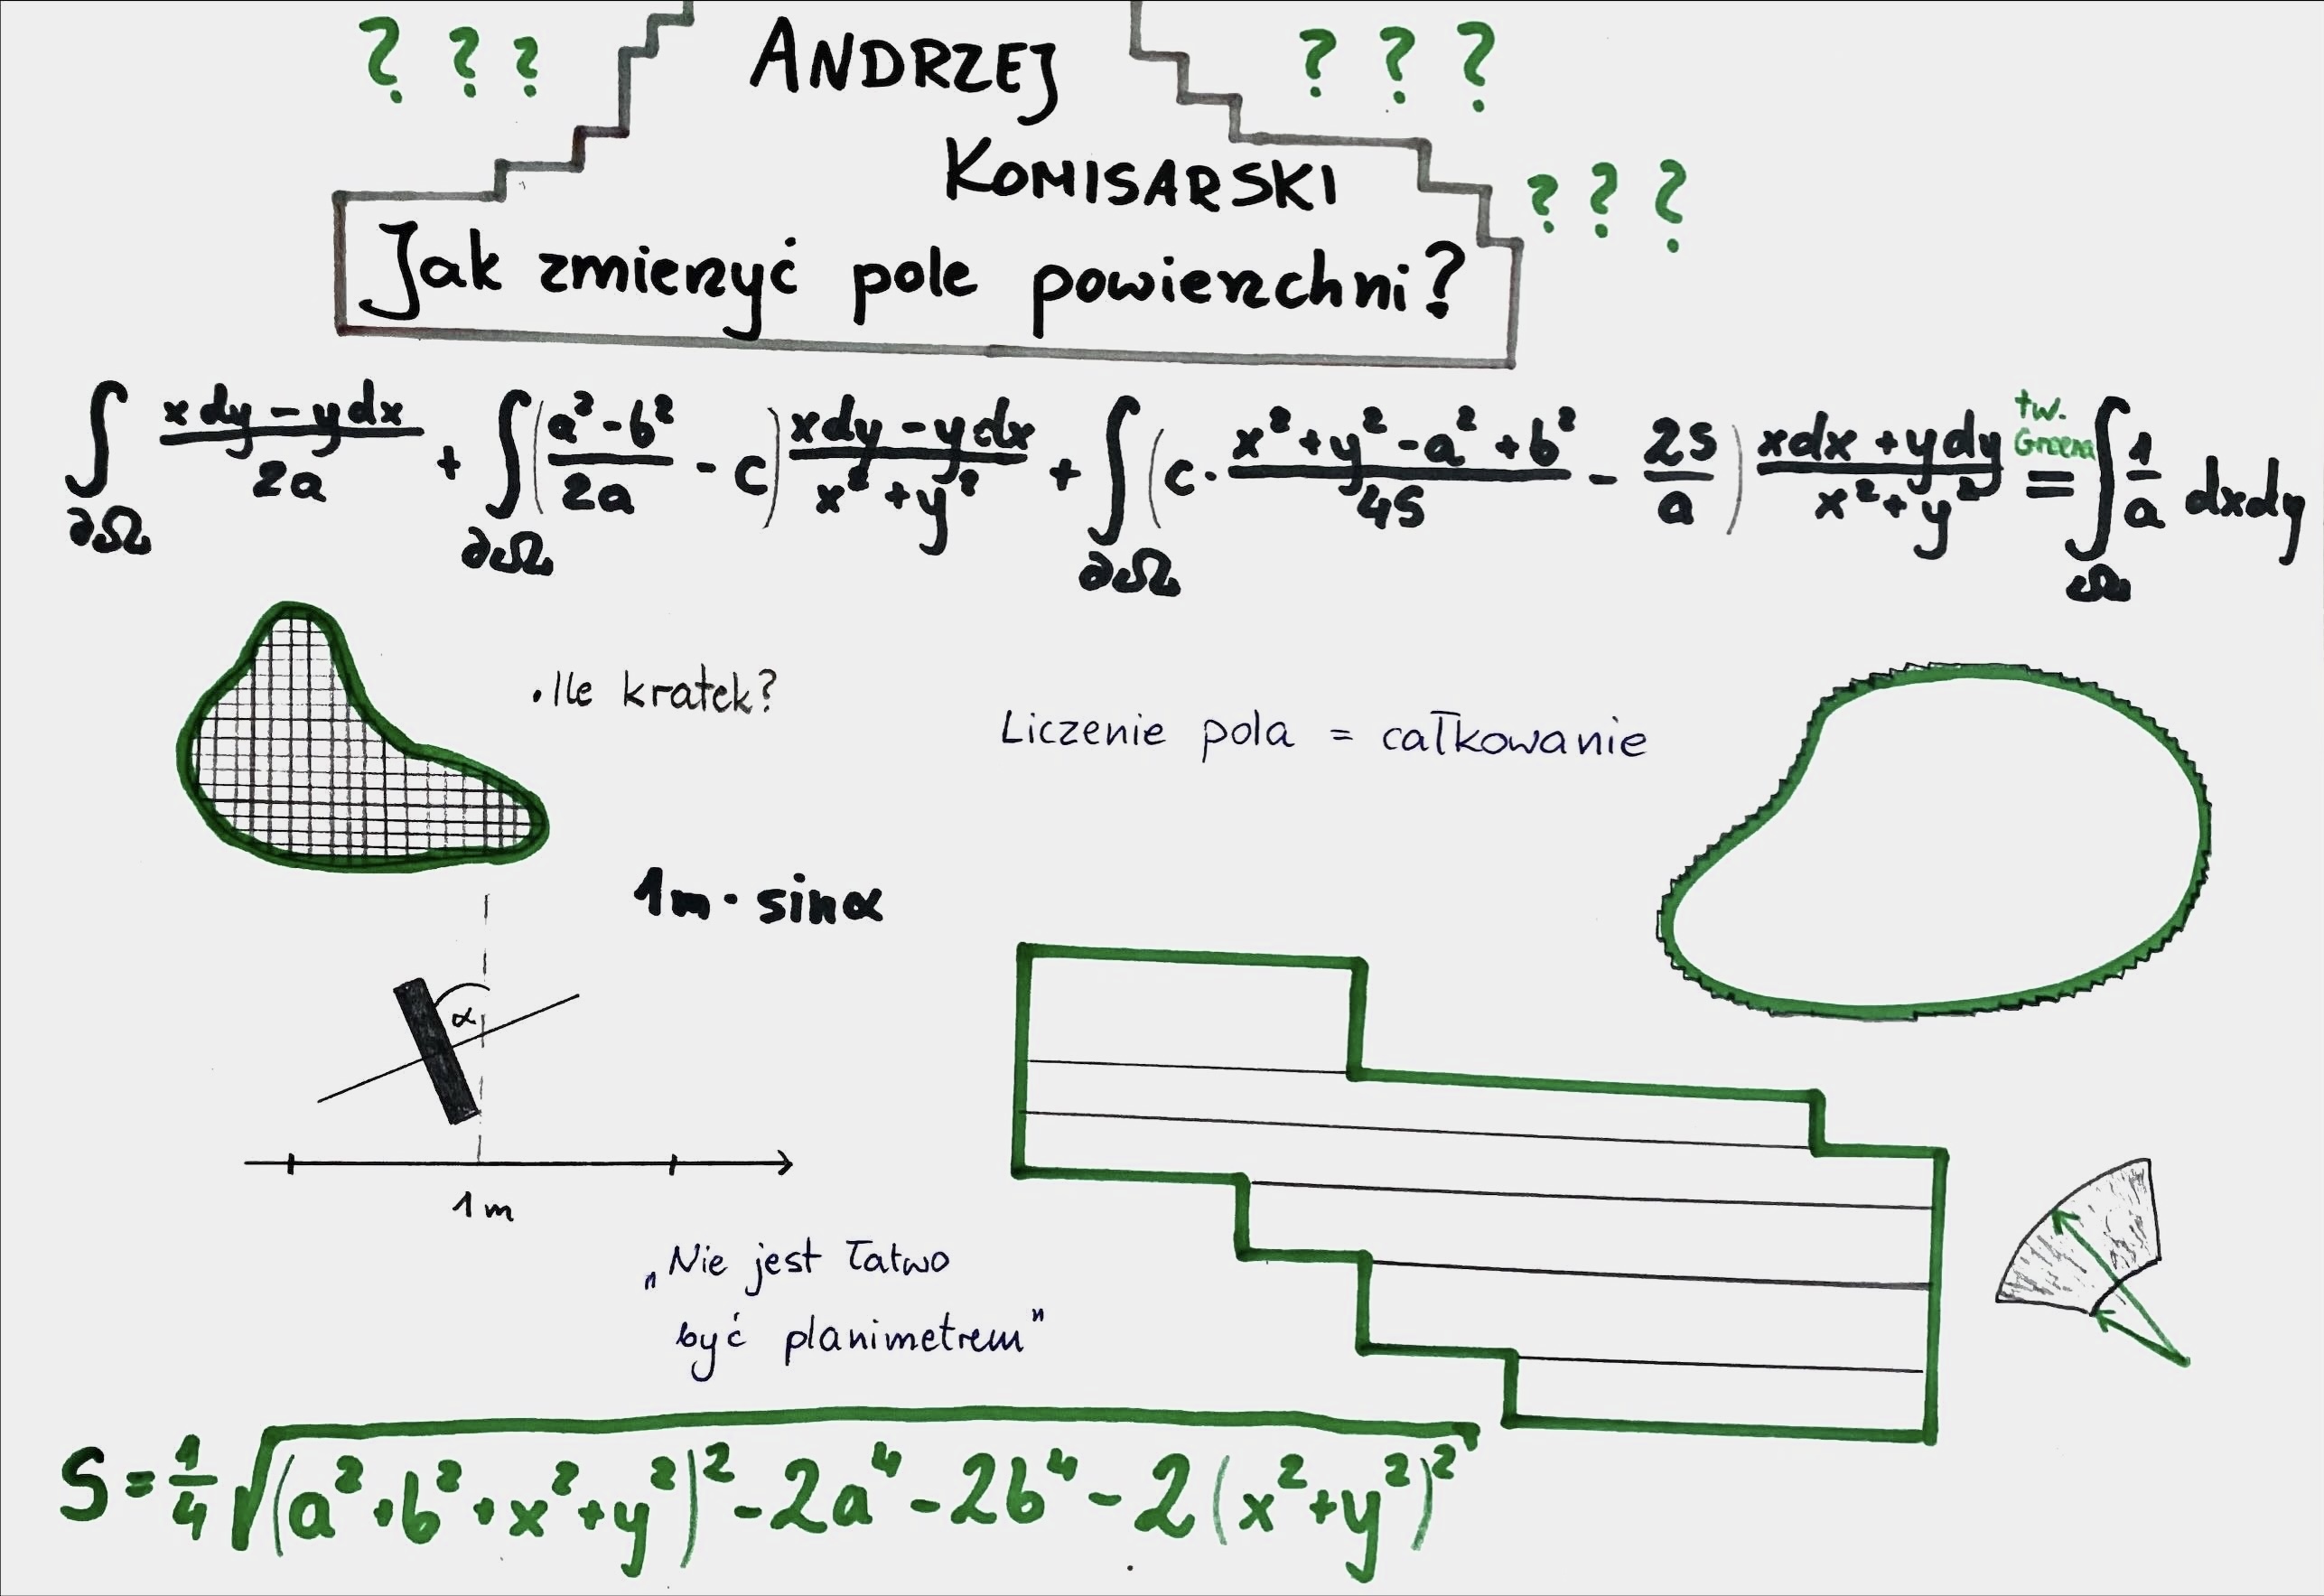 ? ? ? ANDRZEJ ? ? ?
KOMISARSKI ? ? ?
Jak zmierzyć pole powierzchni?
∫_{∂Ω} (xdy-ydx)/(2a) + ∫_{∂Ω} ((a²-b²)/(2a) - c) (xdy-ydx)/(x²+y²) + ∫_{∂Ω} (c·(x²+y²-a²+b²)/(4S) - (2S)/a) (xdx+ydy)/(x²+y²) = ∫_{Ω} 1/a dxdy
tw.
Greena
•Ile kratek?
Liczenie pola = całkowanie
1m·sinα
α
1m
„Nie jest łatwo
być planimetrem"
S=1/4 √((a²+b²+x²+y²)²-2a⁴-2b⁴-2(x²+y²)²)